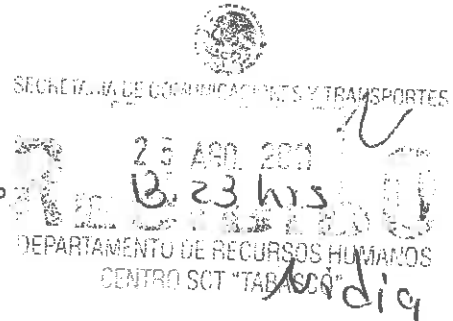 SECRETARIA DE COMUNICACIONES Y TRANSPORTES
25 AGO. 2011
13:23 hrs
DEPARTAMENTO DE RECURSOS HUMANOS
CENTRO SCT "TABASCO"
Nidia